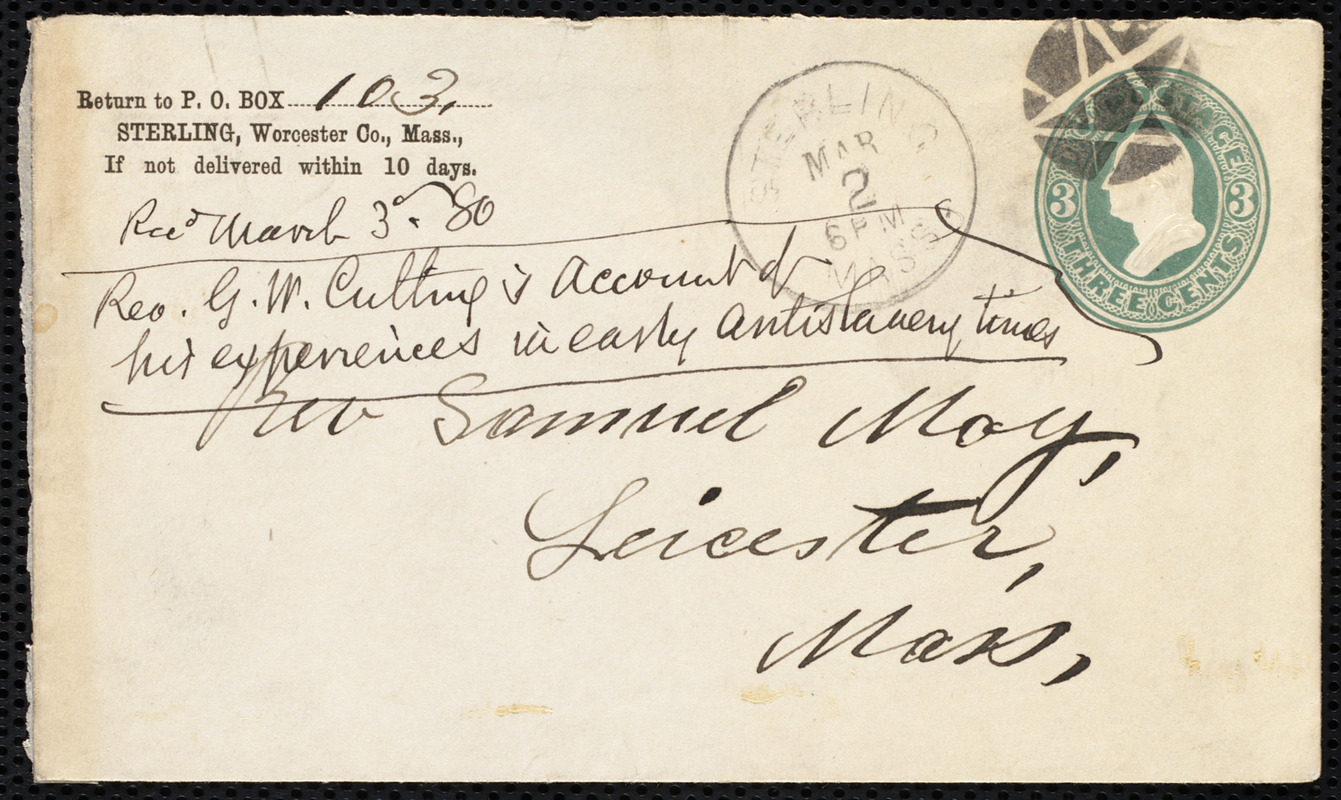 Return to P. O. BOX 103,
STERLING, Worcester Co., Mass.,
If not delivered within 10 days.
STERLING
MAR
2
6 PM
MASS
U.S. POSTAGE
3 3
THREE CENTS
Recd March 3d. 80
Rev. G. W. Cutting's account of
his experiences in early Antislavery times
Rev Samuel May,
Leicester,
Mass,